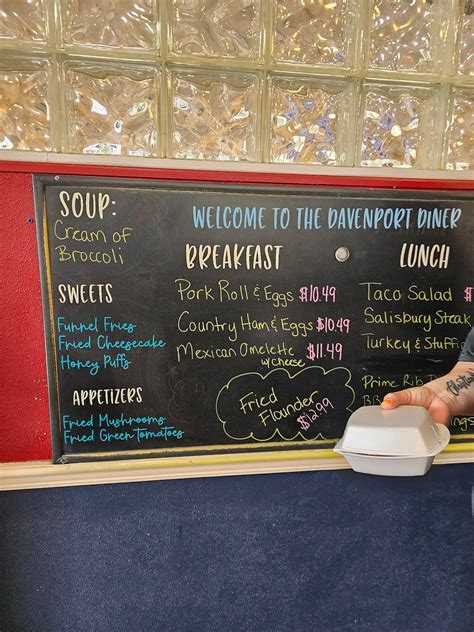 WELCOME TO THE DAVENPORT DINER
SOUP:
Cream of
Broccoli
SWEETS
Funnel Fries
Fried Cheesecake
Honey Puffs
APPETIZERS
Fried Mushrooms
Fried Green Tomatoes
BREAKFAST
Pork Roll & Eggs $10.49
Country Ham & Eggs $10.49
Mexican Omelette $11.49
w/cheese
Fried
Flounder
$12.99
LUNCH
Taco Salad $
Salisbury Steak
Turkey &
Prime Rib